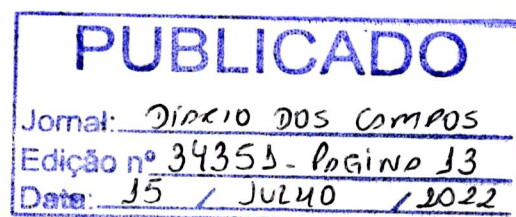 PUBLICADO
Jornal: DIÁRIO DOS CAMPOS
Edição nº 34351 - PAGINA 13
Data: 15 / JULHO / 2022